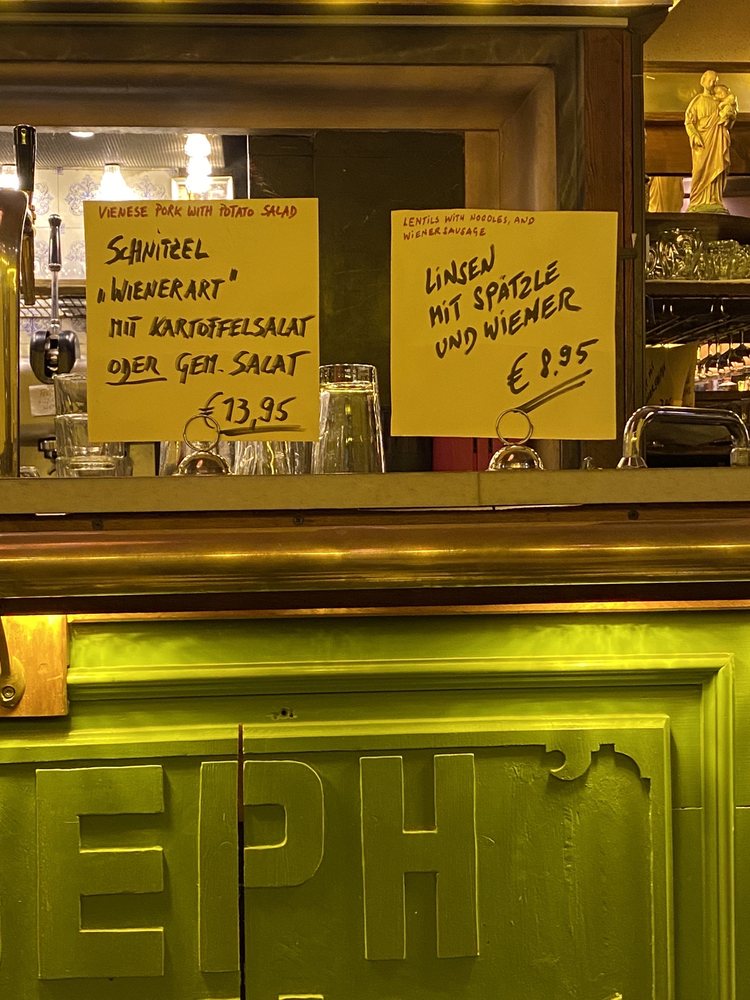 VIENESE PORK WITH POTATO SALAD
SCHNITZEL
„WIENERART"
MIT KARTOFFELSALAT
ODER GEM. SALAT
€ 13,95
LENTILS WITH NOODLES, AND
WIENERSAUSAGE
LINSEN
MIT SPÄTZLE
UND WIENER
€ 8,95
EPH